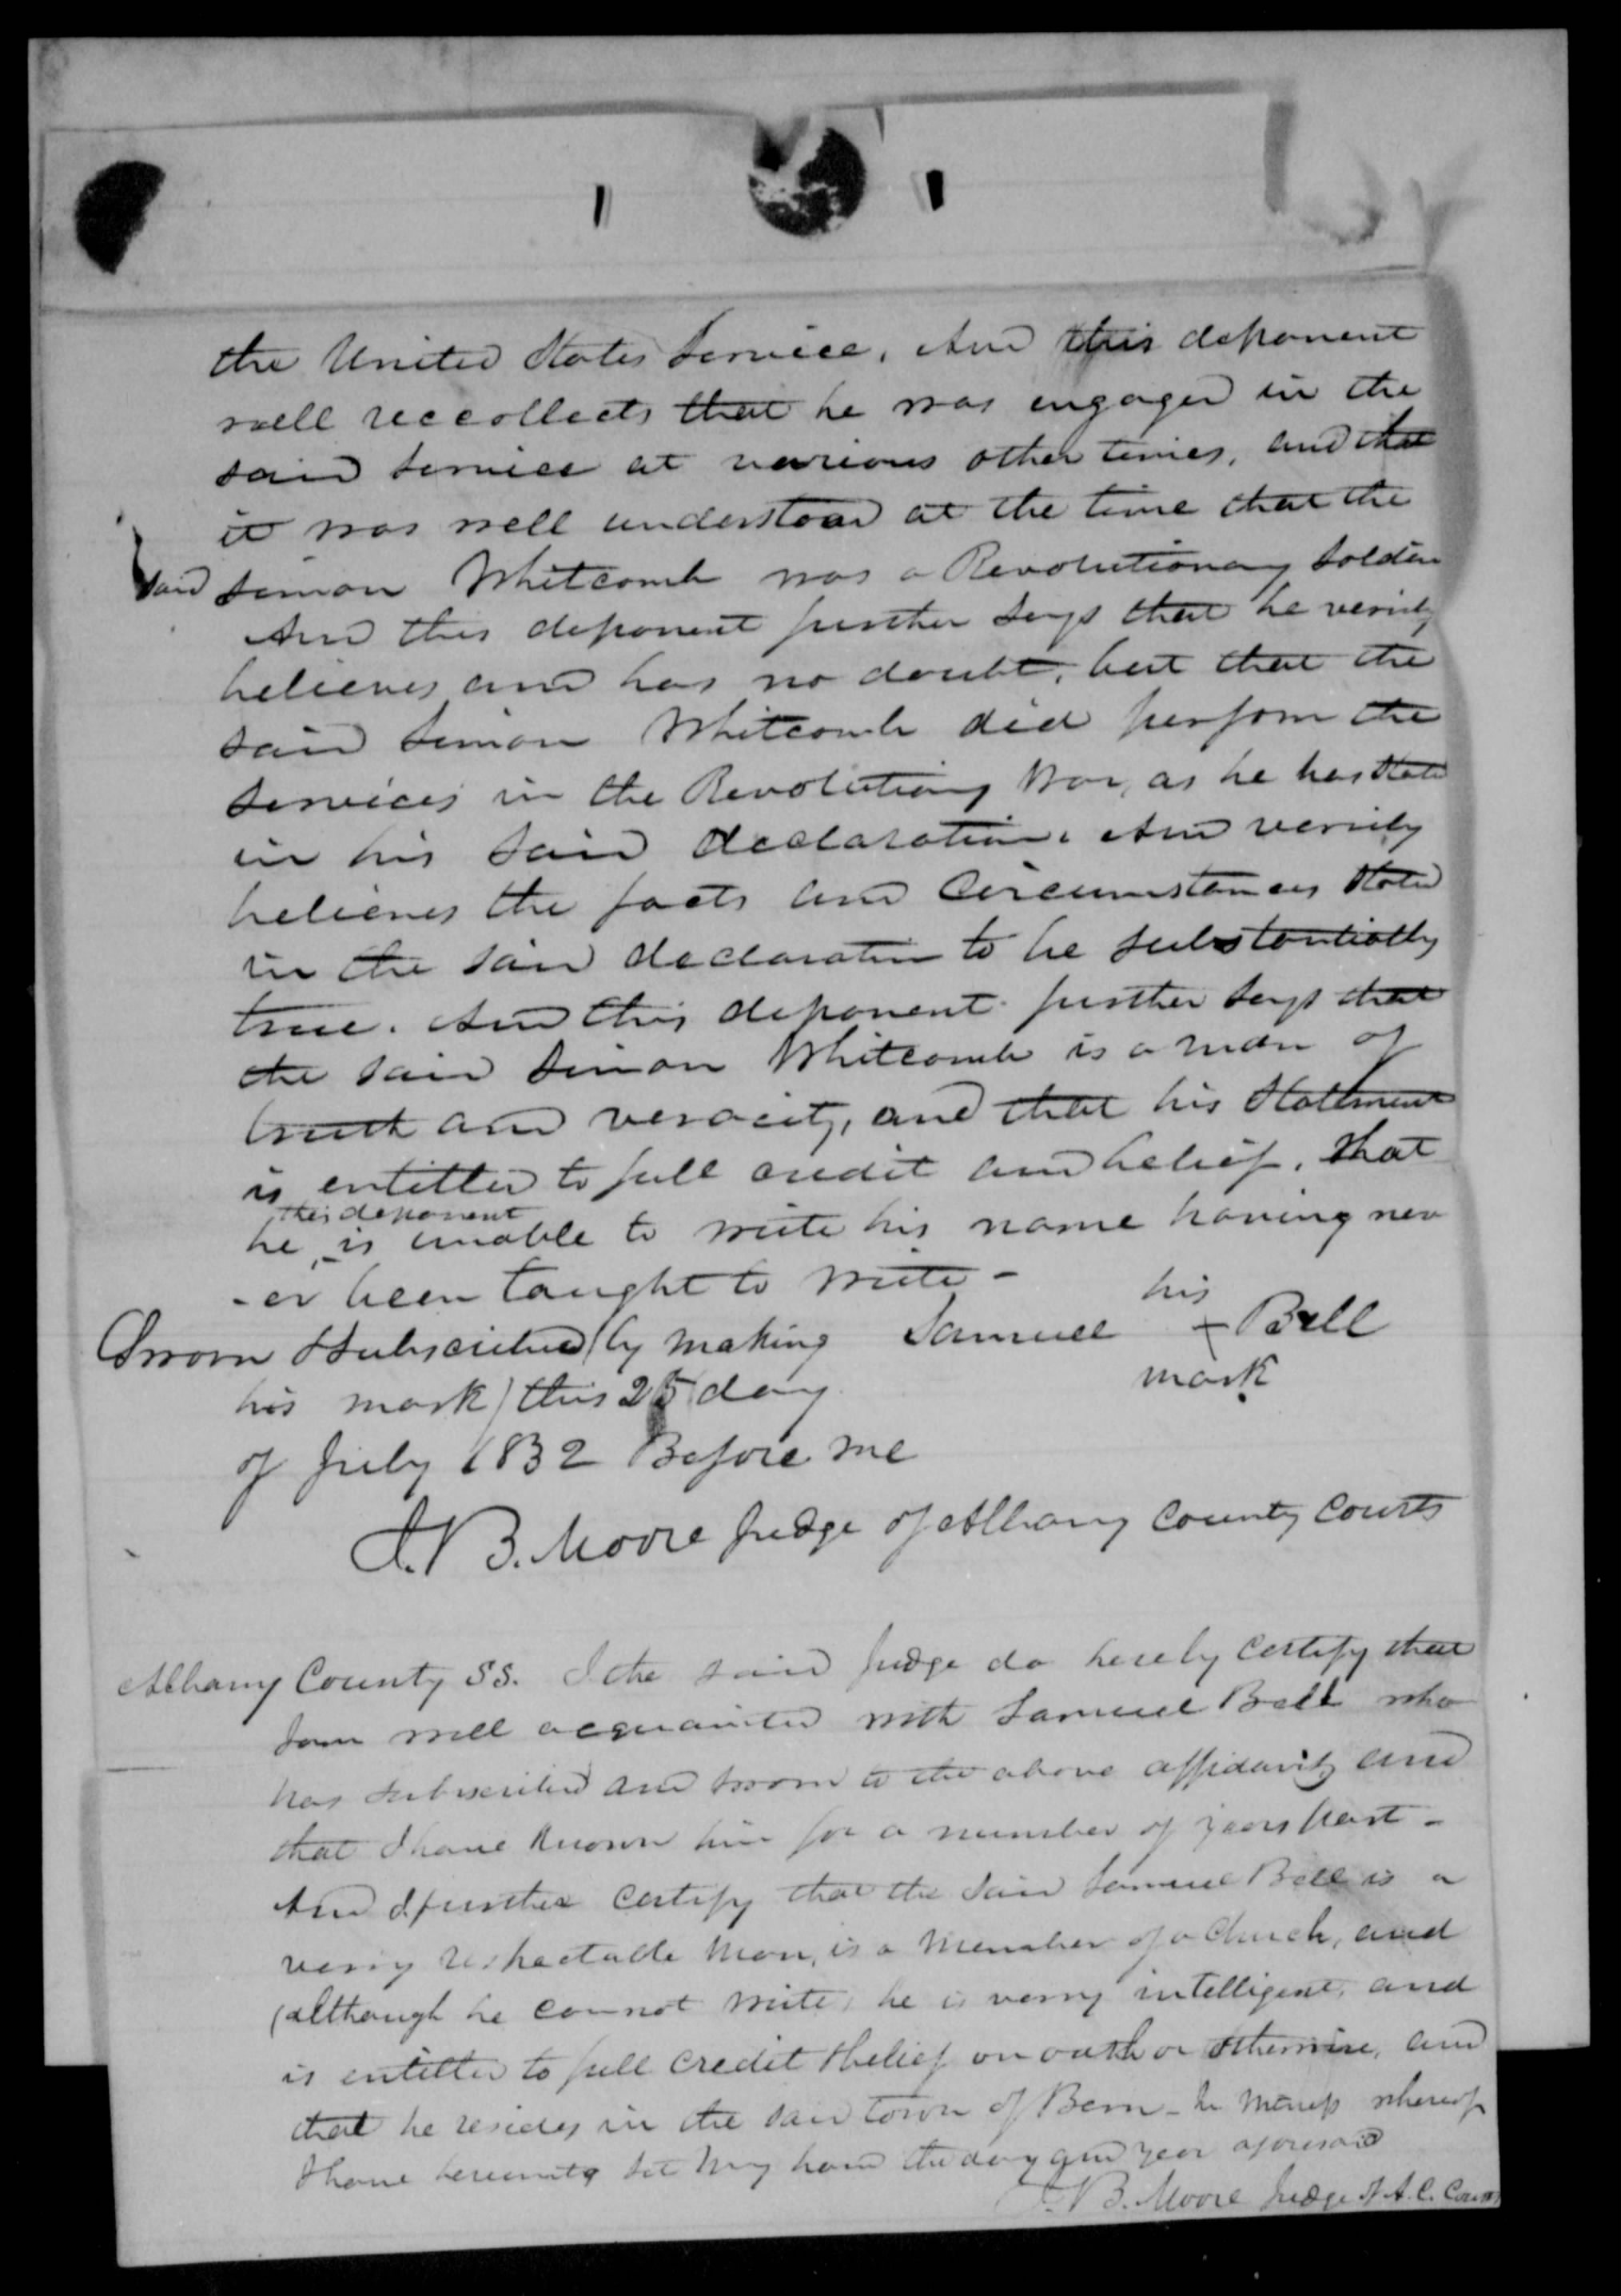 the United States Service, And this deponent
well reccollects that he was engaged in the
said service at various other times, and that
it was well understood at the time that the
said Simon Whitcomb was a Revolutionary Soldier
And this deponent further says that he verrily
believes and has no doubt, but that the
said Simon Whitcomb did perform the
services in the Revolutiony War, as he has stated
in his said declaration. And verrily
believes the facts and Circumstances stated
in the said declaration to be substantially
true. And this deponent further says that
the said Simon Whitcomb is a man of
truth and veracity, and that his Statement
is entitled to full credit and belief. That
this deponent
he is unable to write his name having nev
-er been taught to write -
his
Sworn & subscribed (by making Samuel + Ball
his mark) this 25 day mark
of July 1832 Before me
J. N B. Moore Judge of Albany County Courts
Albany County SS. I the said Judge do hereby Certify that
I am well acquainted with Samuel Ball who
has subscribed and sworn to the above affidavit, and
that I have known him for a number of years past -
And I further Certify that the said Samuel Ball is a
verry respectable Man, is a Member of a Church, and
(although he cannot write) he is verry intelligent, and
is entitled to full credit & belief on oath or otherwise, and
that he resides in the said town of Bern - In Witness whereof
I have hereunto set my hand the day and year aforesaid
J. N B. Moore Judge of A. C. Courts